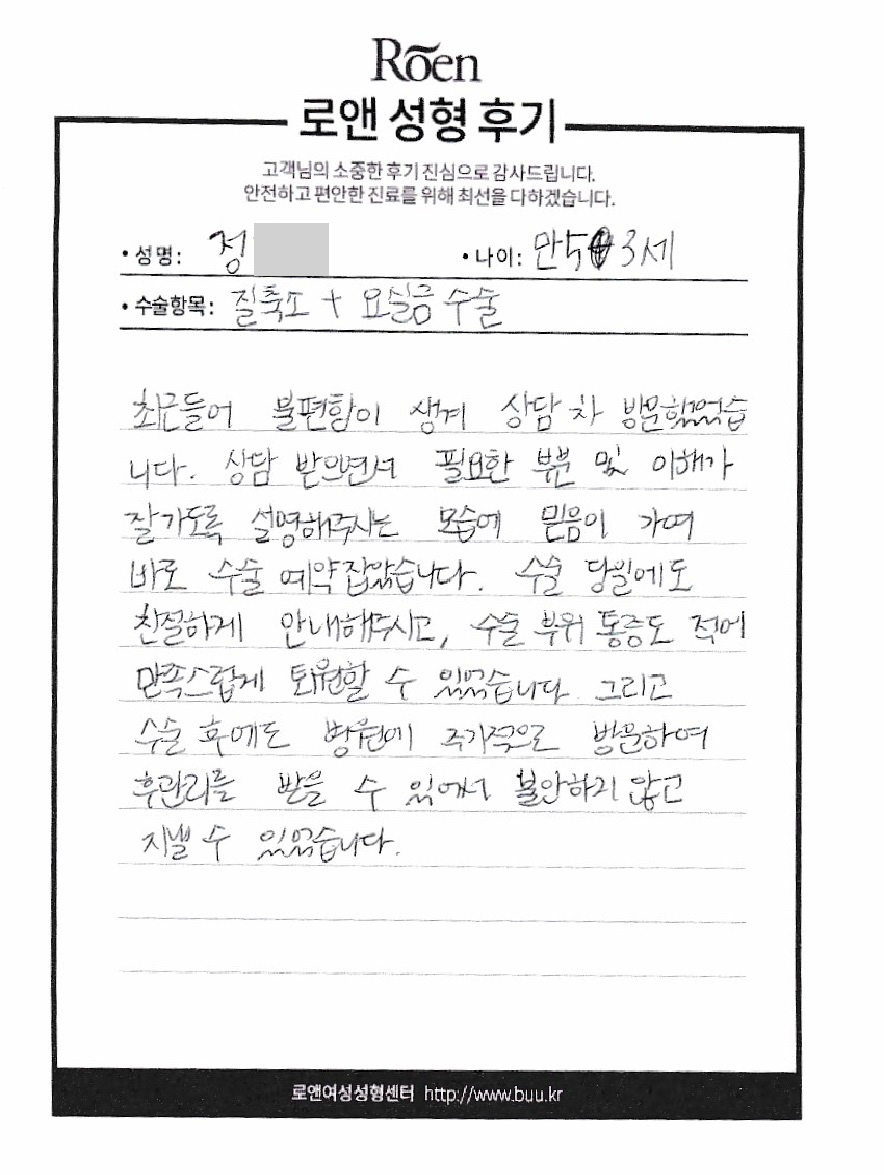 Rõen
로앤 성형 후기
고객님의 소중한 후기 진심으로 감사드립니다.
안전하고 편안한 진료를 위해 최선을 다하겠습니다.
• 성명: 정 • 나이: 만 5 3세
• 수술항목: 질축소 + 요실금 수술
최근들어 불편함이 생겨 상담 차 방문했었습
니다. 상담 받으면서 필요한 부분 및 이해가
잘가도록 설명해주시는 모습에 믿음이 가여
바로 수술 예약잡았습니다. 수술 당일에도
친절하게 안내해주시고, 수술 부위 통증도 적에
만족스럽게 퇴원할 수 있었습니다. 그리고
수술 후에도 병원에 주기적으로 방문하여
후관리를 받을 수 있어서 불안하지 않고
지낼 수 있었습니다.
로앤여성성형센터 http://www.buu.kr